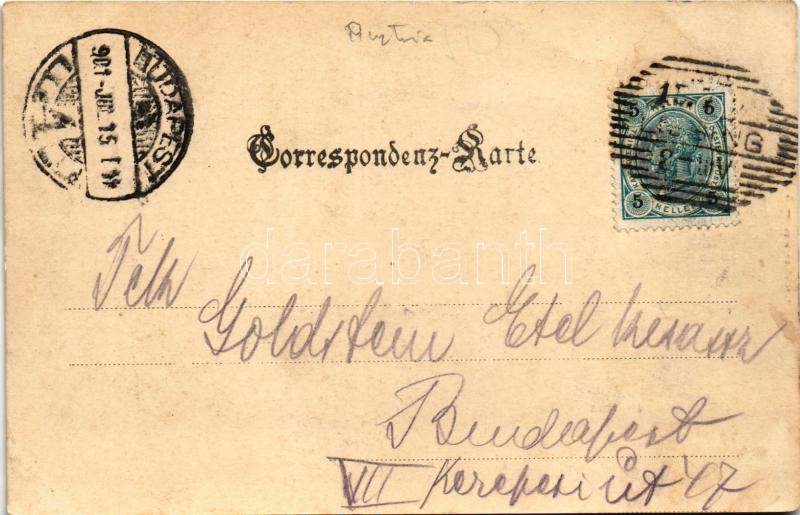 BUDAPEST
901 JUL. 15
5 6
5 5
HELLER
Correspondenz-Karte
darabanth
Tek
Goldstein Etel kisassz
Budapest
VII Kerepesi út 47